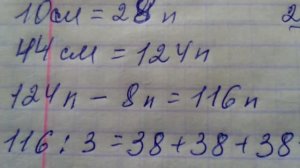 10см = 28п 2
44см = 124п
124п - 8п = 116п
116 : 3 = 38 + 38 + 38